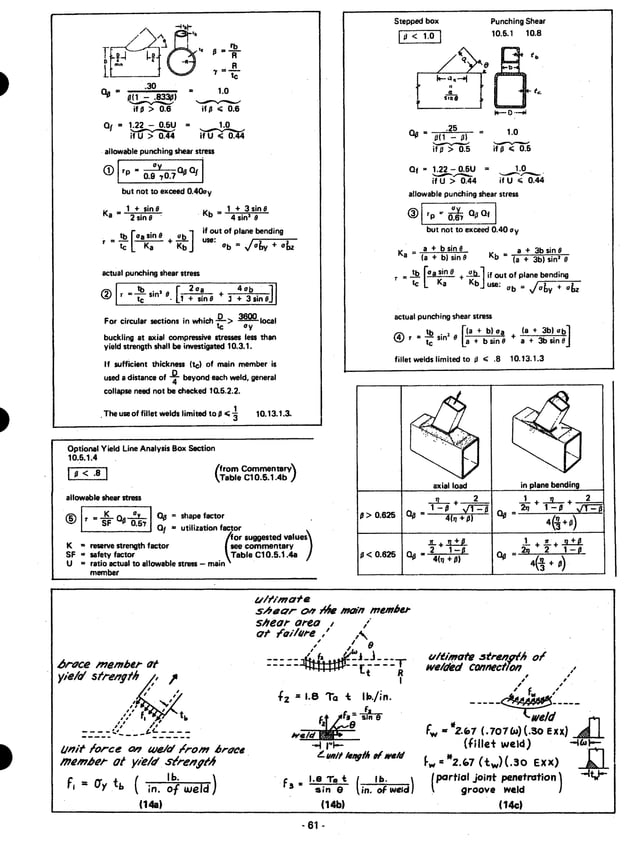 β = rb / R
γ = R / tc
Qβ = .30 / β(1 - .833β) = 1.0
if β > 0.6 if β ⩽ 0.6
Qf = 1.22 - 0.5U = 1.0
if U > 0.44 if U ⩽ 0.44
allowable punching shear stress
① τp = σy / 0.9 γ0.7 Qβ Qf
but not to exceed 0.40σy
Ka = 1 + sin θ / 2 sin θ Kb = 1 + 3 sin θ / 4 sin² θ
τ = tb / tc [ σa sin θ / Ka + σb / Kb ] if out of plane bending
use: σb = √σ²by + σ²bz
actual punching shear stress
② τ = tb / tc sin² θ [ 2 σa / 1 + sin θ + 4 σb / 1 + 3 sin θ ]
For circular sections in which D / tc > 3600 / σy local
buckling at axial compressive stresses less than
yield strength shall be investigated 10.3.1.
If sufficient thickness (tc) of main member is
used a distance of D / 4 beyond each weld, general
collapse need not be checked 10.5.2.2.
The use of fillet welds limited to β ⩽ 1 / 3 10.13.1.3.
Stepped box Punching Shear
β < 1.0 10.5.1 10.8
Qβ = .25 / β(1 - β) = 1.0
if β > 0.5 if β ⩽ 0.5
Qf = 1.22 - 0.5U = 1.0
if U > 0.44 if U ⩽ 0.44
allowable punching shear stress
③ τp = σy / 0.6γ Qβ Qf
but not to exceed 0.40 σy
Ka = a + b sin θ / (a + b) sin θ Kb = a + 3b sin θ / (a + 3b) sin² θ
τ = tb / tc [ σa sin θ / Ka + σb / Kb ] if out of plane bending
use: σb = √σ²by + σ²bz
actual punching shear stress
④ τ = tb / tc sin² θ [ (a + b) σa / a + b sin θ + (a + 3b) σb / a + 3b sin θ ]
fillet welds limited to β < .8 10.13.1.3
Optional Yield Line Analysis Box Section
10.5.1.4
β < .8 (from Commentary
Table C10.5.1.4b)
allowable shear stress
⑤ τ = K / SF Qβ σy / 0.5γ
Qβ = shape factor
Qf = utilization factor
K = reserve strength factor
SF = safety factor
U = ratio actual to allowable stress — main
member
(for suggested values
see commentary
Table C10.5.1.4a)
axial load in plane bending
β > 0.625
β < 0.625
brace member at
yield strength
f₁ tb
unit force on weld from brace
member at yield strength
f₁ = σy tb ( lb. / in. of weld )
(14a)
ultimate
shear on the main member
shear area
at failure
f₂ = 1.8 τa t lb./in.
f₃ = f₂ / sin θ
weld
1"
unit length of weld
f₃ = 1.8 τa t / sin θ ( lb. / in. of weld )
(14b)
ultimate strength of
welded connection
fw
weld
fw = *2.67 (.707ω) (.30 Exx)
(fillet weld)
fw = *2.67 (tw) (.30 Exx)
(partial joint penetration)
groove weld
(14c)
- 61 -